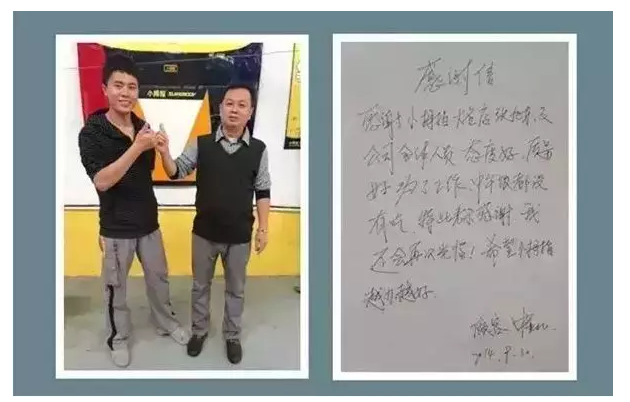 小拇指 SUREKEEP
感谢信
感谢小拇指店及
公司全体人员 态度好,质量
好,为了工作,中午饭都没
有吃,特此表示感谢,我
还会再次光临!希望小拇指
越办越好.
顾客
2014.9.30.